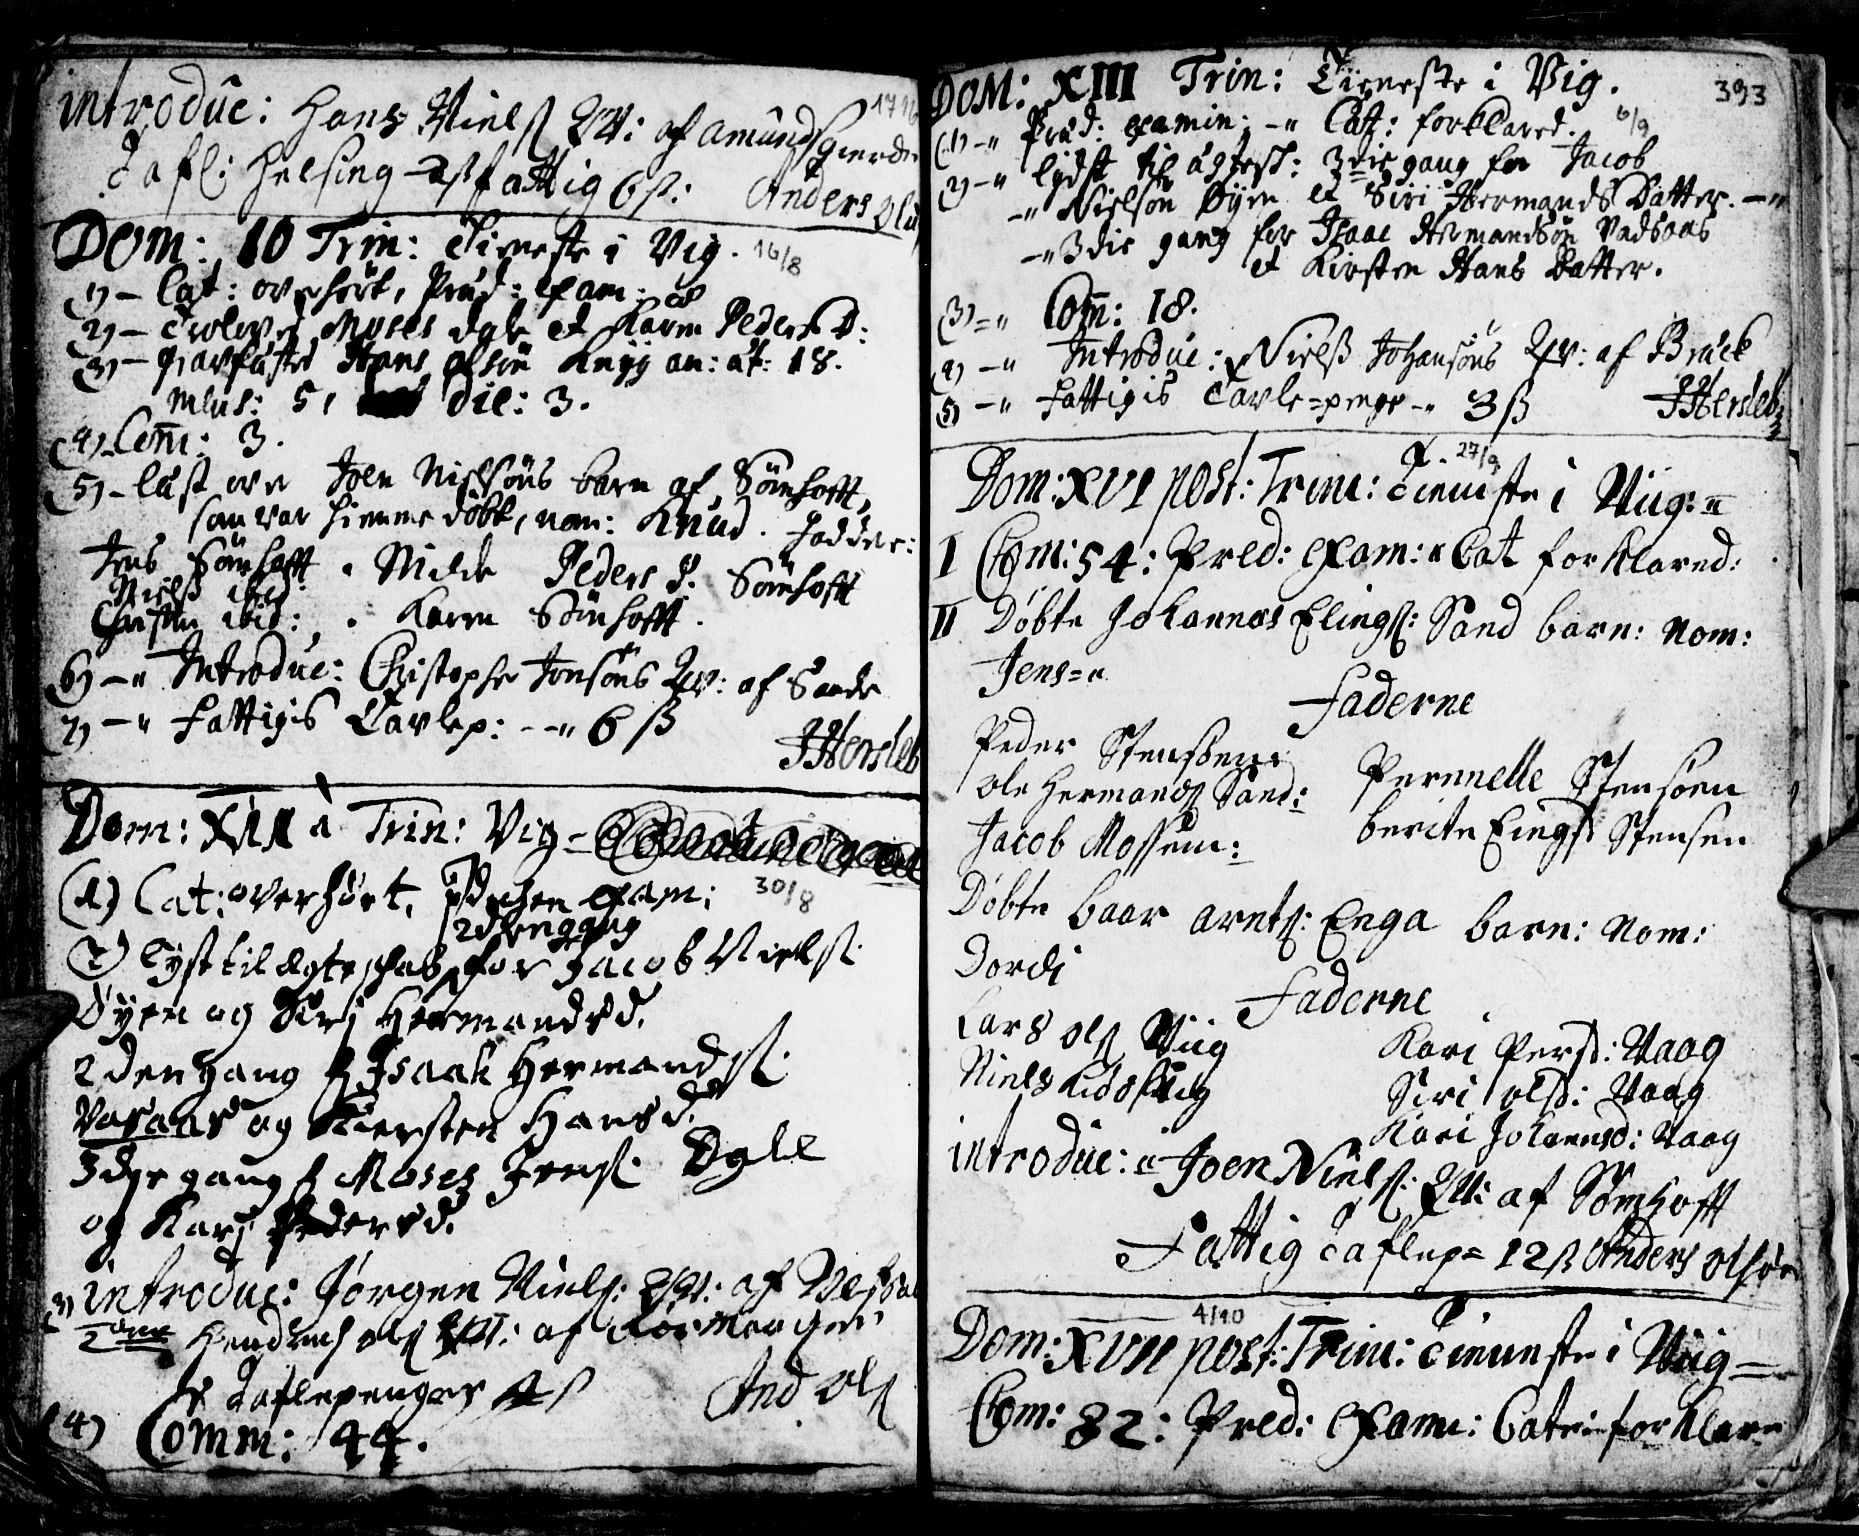 introduc: Hans Nielß QV: af Amundsgierde
Tafl: Helsing - 2ß fattig 6ß: Anders Ols
DOM: 10 Trin: Tieneste i Vig. 16/8
1) - Cat: overhört, Präd: exam:
2) - Trolovet Moses Dahle et Karen Peders D:
3) - Jordfästet Hans Olsön Knyg an: æt: 18.
Mens: 5, Die: 3.
4) Com̄: 3.
5) - läst over Joen Nielsöns barn af Sömhofft,
som var hiemme döbt, nom: Knud. Fadder:
Jens Sömhofft . Peders D. Sömhofft
Niels ibid:
Christen ibid: . Karen Sömhofft.
6) -" Introduc: Christopher Jonsöns QV: af Sande
7) -" Fattigis Tavlep: -" 6 ß
JHersleb
Dom: XII a Trin: Vig -
(1) Cat: overhört, Præd: exam: 30/8
2den gang
(2) Lyst til Ægteskab for Jacob Nielß:
Öyen og Siri Hermandsd.
2den gang f Isaak Hermandsß:
Vasaas og Kiersten Hansd.
3die gang f Moses Jensß: Dahle
og Kari Pedersd.
3) introduc: Jörgen Niels: QV: af
2den Hendrich Olß QV: af
Taflepenger 4ß And Olß
(4) Comm: 44.
393
DOM: XIII Trin: Tieneste i Vig.
(1) -" Präd: examin: -" Cat: forklared. 6/9
2) -" lydst til ægtesk: 3die gang for Jacob
-" Nielsön Öyen et Siri Hermands Datter. -"
-" 3die gang for Isaac Hermandsön Vadsaas
et Kirsten Hans Datter.
(3) =" Com̄: 18.
4) -" Introduc: Nielß Johansöns QV: af Bruck
5) -" Fattigis Tavle=penge -" 3 ß JHersleb
27/9
Dom: XVI post: Trini: Tieneste i Viig:
I Com: 54: Pred: Exam: Cat forklared:
II Döbte Johannes Elingß: Sand barn: Nom:
Jens =
Faderne
Peder Stensöen:
Ole Hermandß Sand: Pernnelle Stensöen
Jacob Mossem: berite Eingsd Stensen
Döbte baar Arntß: Enga barn: Nom:
Dordi
Faderne
Lars Olß Viig Kari Persd: Vaag
Niels Viig Siri Olsd: Vaag
Kari Johannsd: Vaag
introduc: Joen Nielß: QV: af Sömhofft
Fattig Taflep= 12ß Anders Olsön
4/10
Dom: XVII post: Trini: Tieneste i Viig =
Com: 82: Pred: Exam: Cate: forklare